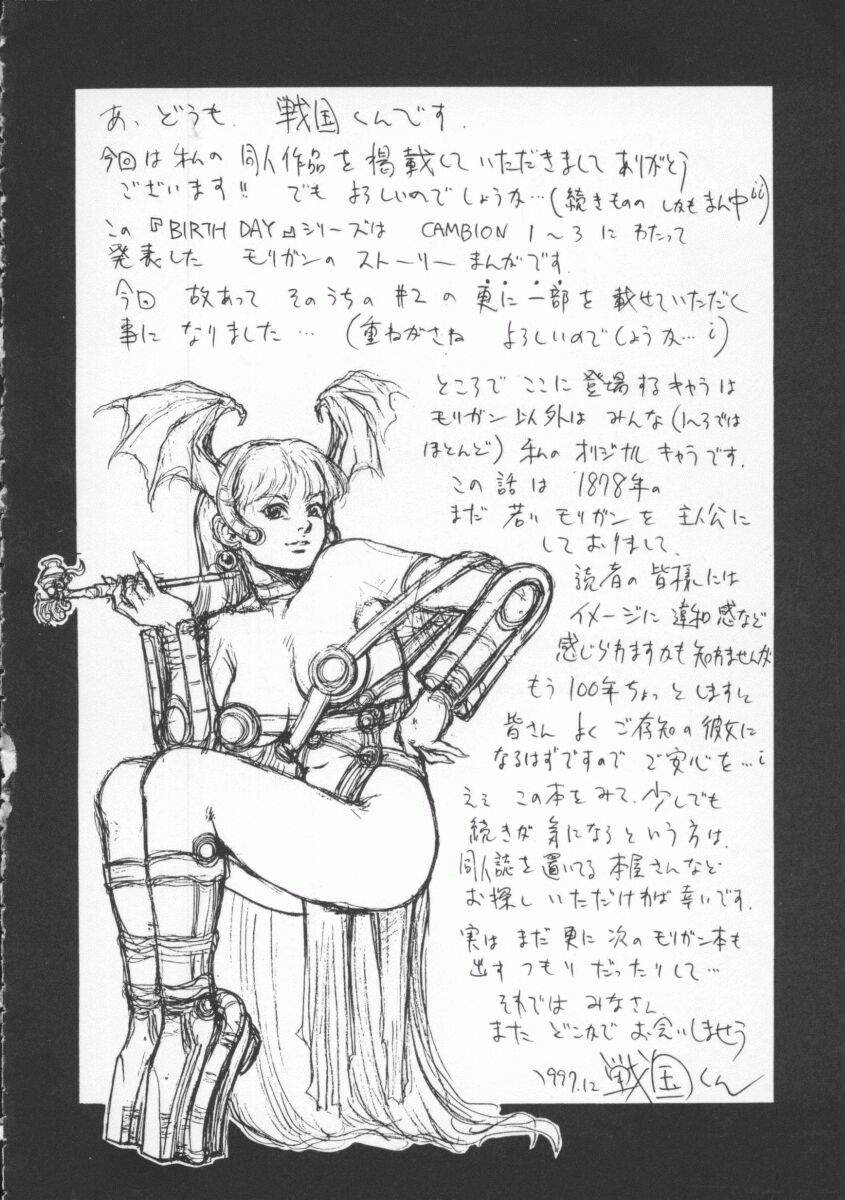 あ、どうも. 戦国くんです.
今回は私の同人作品を掲載していただきましてありがとう
ございます!! でもよろしいのでしょうか…(続きもの しかもまん中!!)
この『BIRTH DAY』シリーズは CAMBION 1〜3 にわたって
発表した モリガンのストーリーまんがです.
今回 故あって そのうちの #2 の 更に一部を 載せていただく
事に なりました… (重ねがさね よろしいのでしょうか…!)
ところで ここに 登場するキャラは
モリガン以外は みんな(1〜3では
ほとんど) 私の オリジナル キャラです.
この 話 は 1878年の
まだ 若い モリガン を 主人公に
しておりまして.
読者の 皆様には
イメージに 違和感など
感じられますかも知れませんが
もう 100年ちょっと しますと
皆さん よく ご存知の 彼女に
なるはずですので ご安心を…!
ええ この本をみて. 少しでも
続きが 気になる という 方は.
同人誌を置いてる 本屋さんなど
お探し いただければ 幸いです.
実は まだ 更に 次の モリガン本も
出す つもり だったりして…
それでは みなさん
また どこかで お会いしませう
1997.12 戦国くん